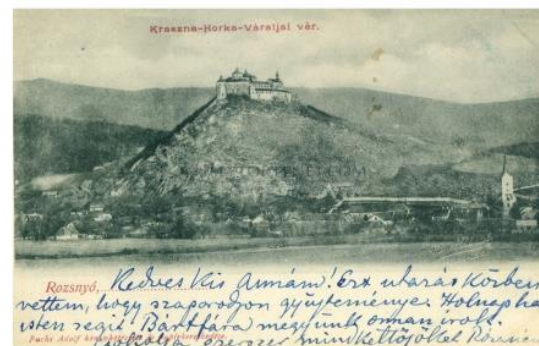 Kraszna-Horka-Váraljai vár.
Rozsnyó, Kedves Kis Annám! Ezt utazás közben
vettem, hogy szaporodjon gyüjteménye. Holnap ha
isten segit Bártfára megyünk onnan irok.
Fuchs Adolf
csókolja ezerszer mindkettőjöket